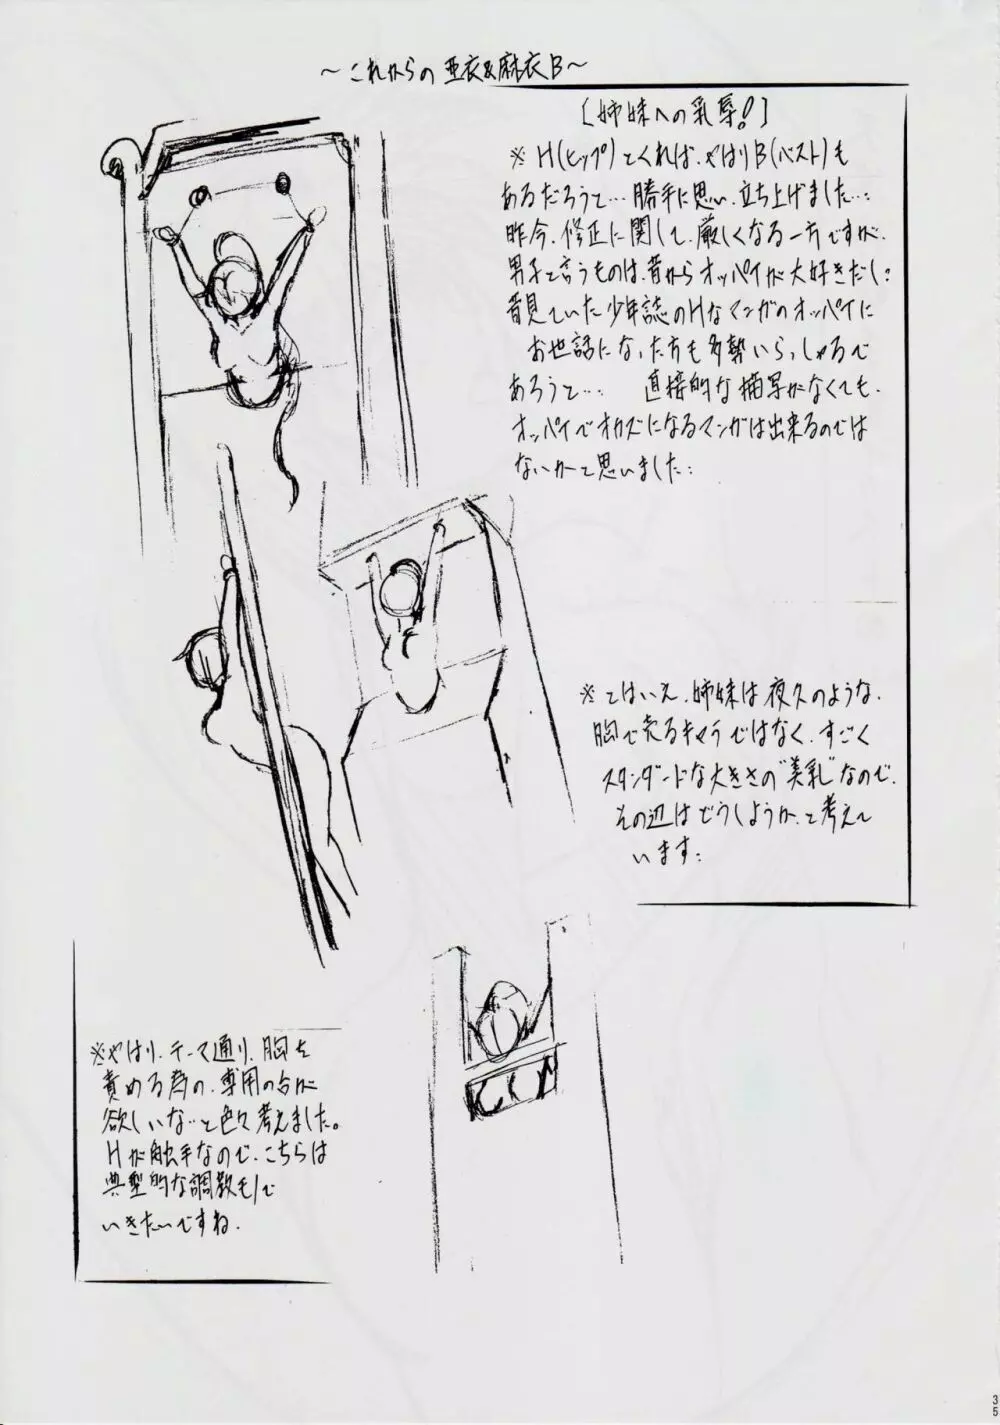 ～これからの亜衣&麻衣B～
［姉妹への乳辱！］
※H(ヒップ)とくれば、やはりB(バスト)も
あるだろうと…勝手に思い、立ち上げました…
昨今、修正に関して、厳しくなる一方ですが、
男子と言うものは、昔からオッパイが大好きだし…
昔見ていた少年誌のHなマンガのオッパイに
お世話になった方も多勢いらっしゃるで
あろうと… 直接的な描写がなくても、
オッパイでオカズになるマンガは出来るのでは
ないかと思いました…
※とはいえ、姉妹は夜久のような、
胸で売るキャラではなく、すごく
スタンダードな大きさの"美乳"なので、
その辺はどうしようか、と考えて
います…
※やはり、テーマ通り、胸を
責める為の、専用の台が
欲しいな…と色々考えました。
Hが触手なので、こちらは
典型的な調教モノで
いきたいですね。
35